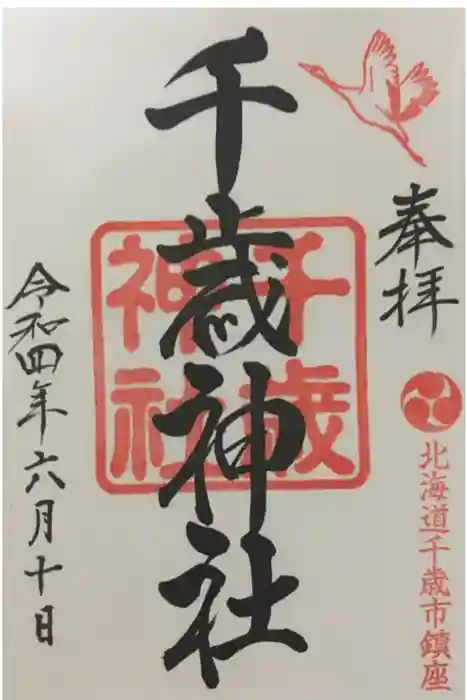 奉拝
北海道千歳市鎮座
千歳神社
千歳
神社
令和四年六月十日